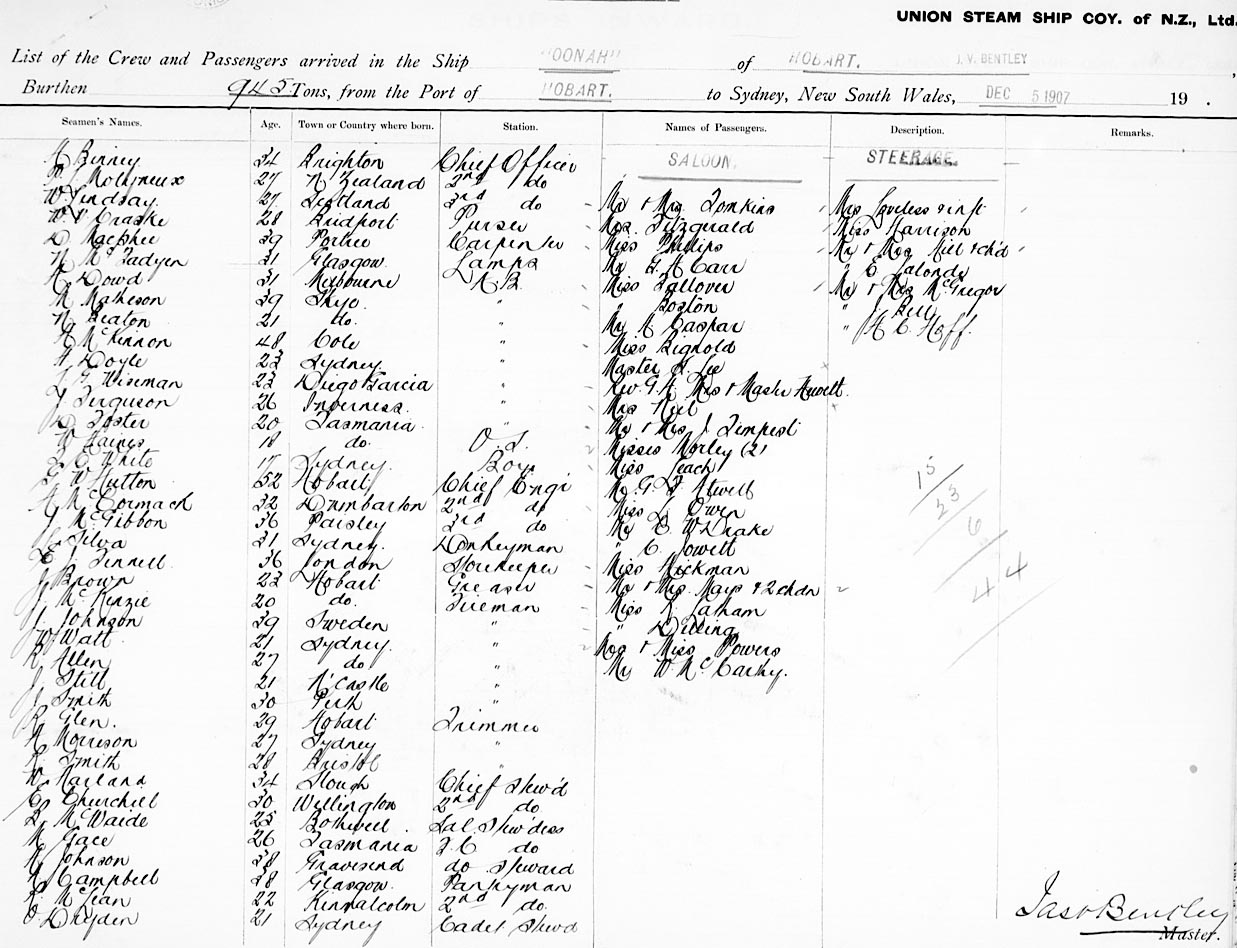 UNION STEAM SHIP COY. of N.Z., Ltd.
List of the Crew and Passengers arrived in the Ship "OONAH" of HOBART. J. V. BENTLEY,
Burthen 945 Tons, from the Port of HOBART. to Sydney, New South Wales, DEC 5 1907 19 .
Seamen's Names. Age. Town or Country where born. Station. Names of Passengers. Description. Remarks.
Binney 34 Brighton Chief Officer SALOON. STEERAGE
Molyneux 27 N Zealand 2nd do
W. Lindsay. 27 Scotland 3rd do Mr & Mrs Tomkins Mrs Loveless & inft
W. Craske 28 Bridport Purser Mrs. Fitzgerald Miss Harrison
D MacPhee 39 Portree Carpenter Miss Phillips Mr & Mrs & ch'd
N McFadyen 31 Glasgow. Lamps Mr Carr " Lalonde
Dowd 31 Melbourne A.B. Miss Fallover Mr & Mrs McGregor
M Matheson 39 Skye. " " Boston " Bell
N Beaton 21 do. " Mr Caspar " Hoff.
A McKinnon 48 Cole " Miss Bignold
Doyle 23 Sydney. " Master Lee
Wiseman 23 Diego Garcia " Rev. G. A. Mrs & Master Hewett.
Ferguson 26 Inverness. " Mrs
D. Foster 20 Tasmania. " Mr & Mrs J. Tempest
W Haines 18 do. O.S. Misses Morley (2)
White 17 Sydney. Boy Miss Leach
W Hutton 52 Hobart Chief Engi Mr. G. Atwell
A McCormack 32 Dumbarton 2nd do Miss L Owen
J McGibbon 36 Paisley 3rd do Mr E W Drake
Silva 31 Sydney. Donkeyman " C. Jowett
Tennell 36 London Storekeeper Miss Hickman
J Brown 23 Hobart Greaser Mr & Mrs. Mays & 2 chdn
J McKenzie 20 do. Fireman Miss Latham
J. Johnson 39 Sweden " "
W Watt 21 Sydney. " Mrs & Miss Powers
R Allen 27 do " Mr W. McCarthy.
J Still 21 N'Castle "
Smith 30 Perth "
R Glen. 29 Hobart Trimmer
Morrison 27 Sydney "
Smith 28 Bristol "
W. Harland 34 Slough Chief Stew'd
C Churchill 30 Wellington 2nd do
McWaide 25 Bothwell. Sal. Stew'dess
M Gace 26 Tasmania do
Johnson 38 Gravesend do Steward
Campbell 38 Glasgow. Pantryman
McLean 22 Kinmalcolm 2nd do.
O. Dryden 21 Sydney Cadet Stew'd
15
23
6
44
Jas V Bentley
Master.